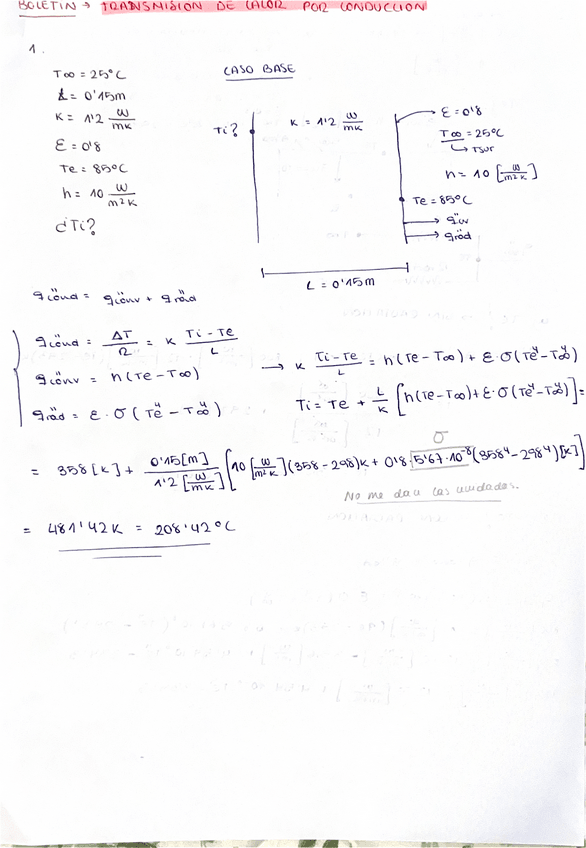 BOLETIN → TRANSMISION DE CALOR POR CONDUCCION
1.
T∞ = 25°C
L = 0'15m
K = 1'2 W/mK
ε = 0'8
Te = 85°C
h = 10 W/m²K
¿Ti?
CASO BASE
Ti?
K = 1'2 W/mK
ε = 0'8
T∞ = 25°C
↳ Tsur
h = 10 [W/m²K]
Te = 85°C
→ q̈conv
→ q̈rad
L = 0'15m
q̈cond = q̈conv + q̈rad
q̈cond = ΔT/R = K (Ti - Te)/L
q̈conv = h(Te - T∞)
q̈rad = ε · σ (Te⁴ - T∞⁴)
→ K (Ti - Te)/L = h(Te - T∞) + ε · σ (Te⁴ - T∞⁴)
Ti = Te + L/K [h(Te - T∞) + ε · σ (Te⁴ - T∞⁴)] =
σ
= 358 [K] + 0'15[m]/1'2 [W/mK] [10 [W/m²K] (358 - 298)K + 0'8 · 5'67·10⁻⁸ (358⁴ - 298⁴) [K]]
No me dan las unidades.
= 481'42K = 208'42°C